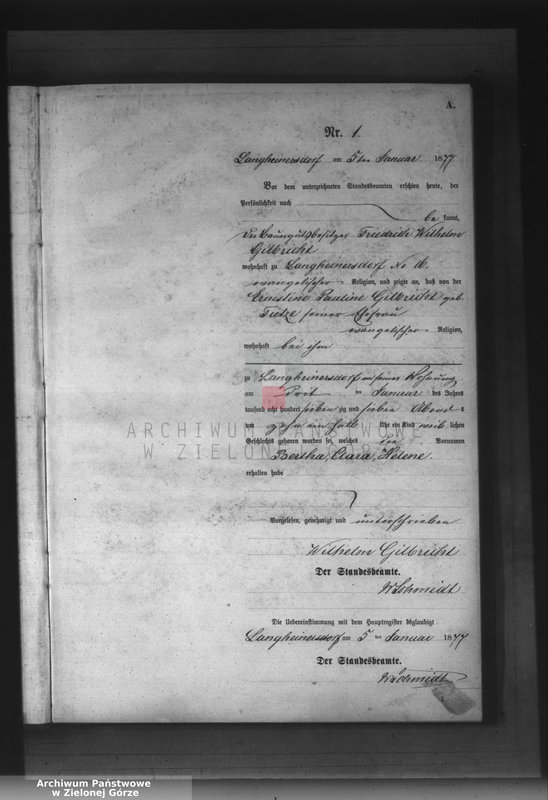 A.
Nr. 1.
Langheinersdorf am 5ten Januar 1877
Vor dem unterzeichneten Standesbeamten erschien heute, der
Persönlichkeit nach
be kannt,
Der Bauergutsbesitzer Friedrich Wilhelm
Gilbricht
wohnhaft zu Langheinersdorf No 16.
evangelischer Religion, und zeigte an, daß von der
Ernestine Pauline Gilbricht geb.
Tietze seiner Ehefrau
evangelischer Religion,
wohnhaft bei ihm
zu Langheinersdorf in seiner Wohnung
am Januar des Jahres
tausend acht hundert sieben zig und sieben Abend s
um zehn ein halb Uhr ein Kind weib lichen
Geschlechts geboren worden sei, welches die Vornamen
Bertha, Clara, Helene
erhalten habe
ARCHIWUM PAŃSTWOWE
W ZIELONEJ GÓRZE
Vorgelesen, genehmigt und unterschrieben
Wilhelm Gilbricht
Der Standesbeamte.
WSchmidt
Die Uebereinstimmung mit dem Hauptregister beglaubigt
Langheinersdorf am 5 ten Januar 1877
Der Standesbeamte.
WSchmidt
Archiwum Państwowe
w Zielonej Górze